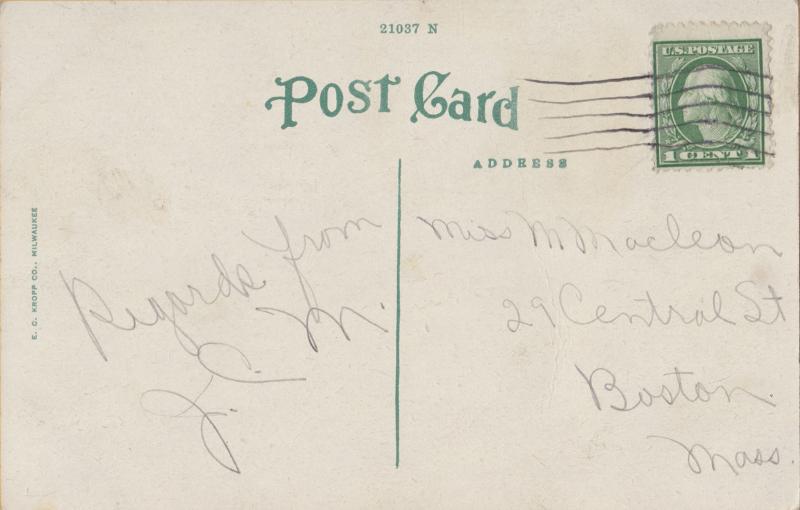 21037 N
Post Card
U.S. POSTAGE
1 CENT 1
ADDRESS
E. C. KROPP CO., MILWAUKEE
Regards from
J. C. M.
Miss M Maclean
29 Central St
Boston
Mass.